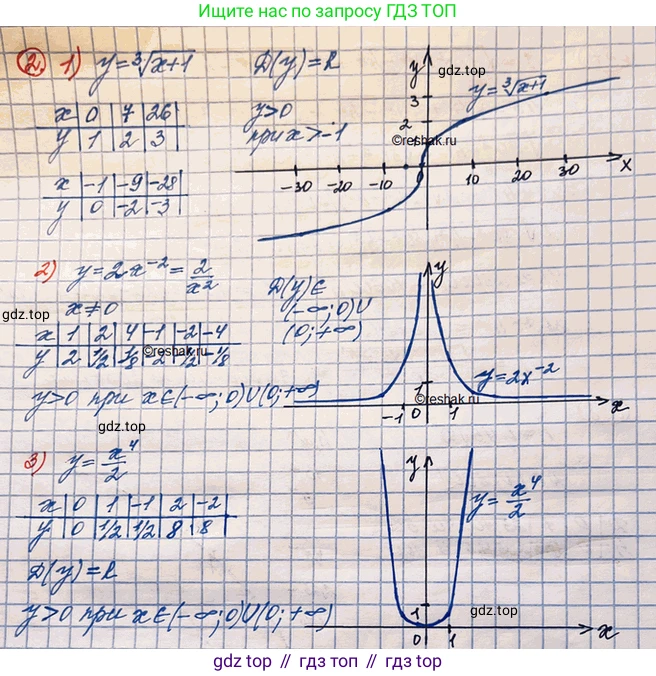 Ищите нас по запросу ГДЗ ТОП
2. 1) y = ∛(x+1) D(y) = R
x | 0 | 7 | 26
y | 1 | 2 | 3
y>0
при x>-1
x | -1 | -9 | -28
y | 0 | -2 | -3
y
gdz.top
y = ∛(x+1)
3
2
©reshak.ru
-30 -20 -10 10 20 30 x
2) y = 2x⁻² = 2/x²
x≠0
D(y)∈
(-∞;0)∪
(0;+∞)
gdz.top
x | 1 | 2 | 4 | -1 | -2 | -4
y | 2 | 1/2 | 1/8 | -2 | 1/2 | -1/8
©reshak.ru
y>0 при x∈(-∞;0)∪(0;+∞)
y
y = 2x⁻²
1
©reshak.ru
-1 0 1 x
gdz.top
3) y = x⁴/2
x | 0 | 1 | -1 | 2 | -2
y | 0 | 1/2 | 1/2 | 8 | 8
D(y) = R
y>0 при x∈(-∞;0)∪(0;+∞)
y
y = x⁴/2
1
gdz.top
0 1 x
gdz.top // гдз топ // gdz.top